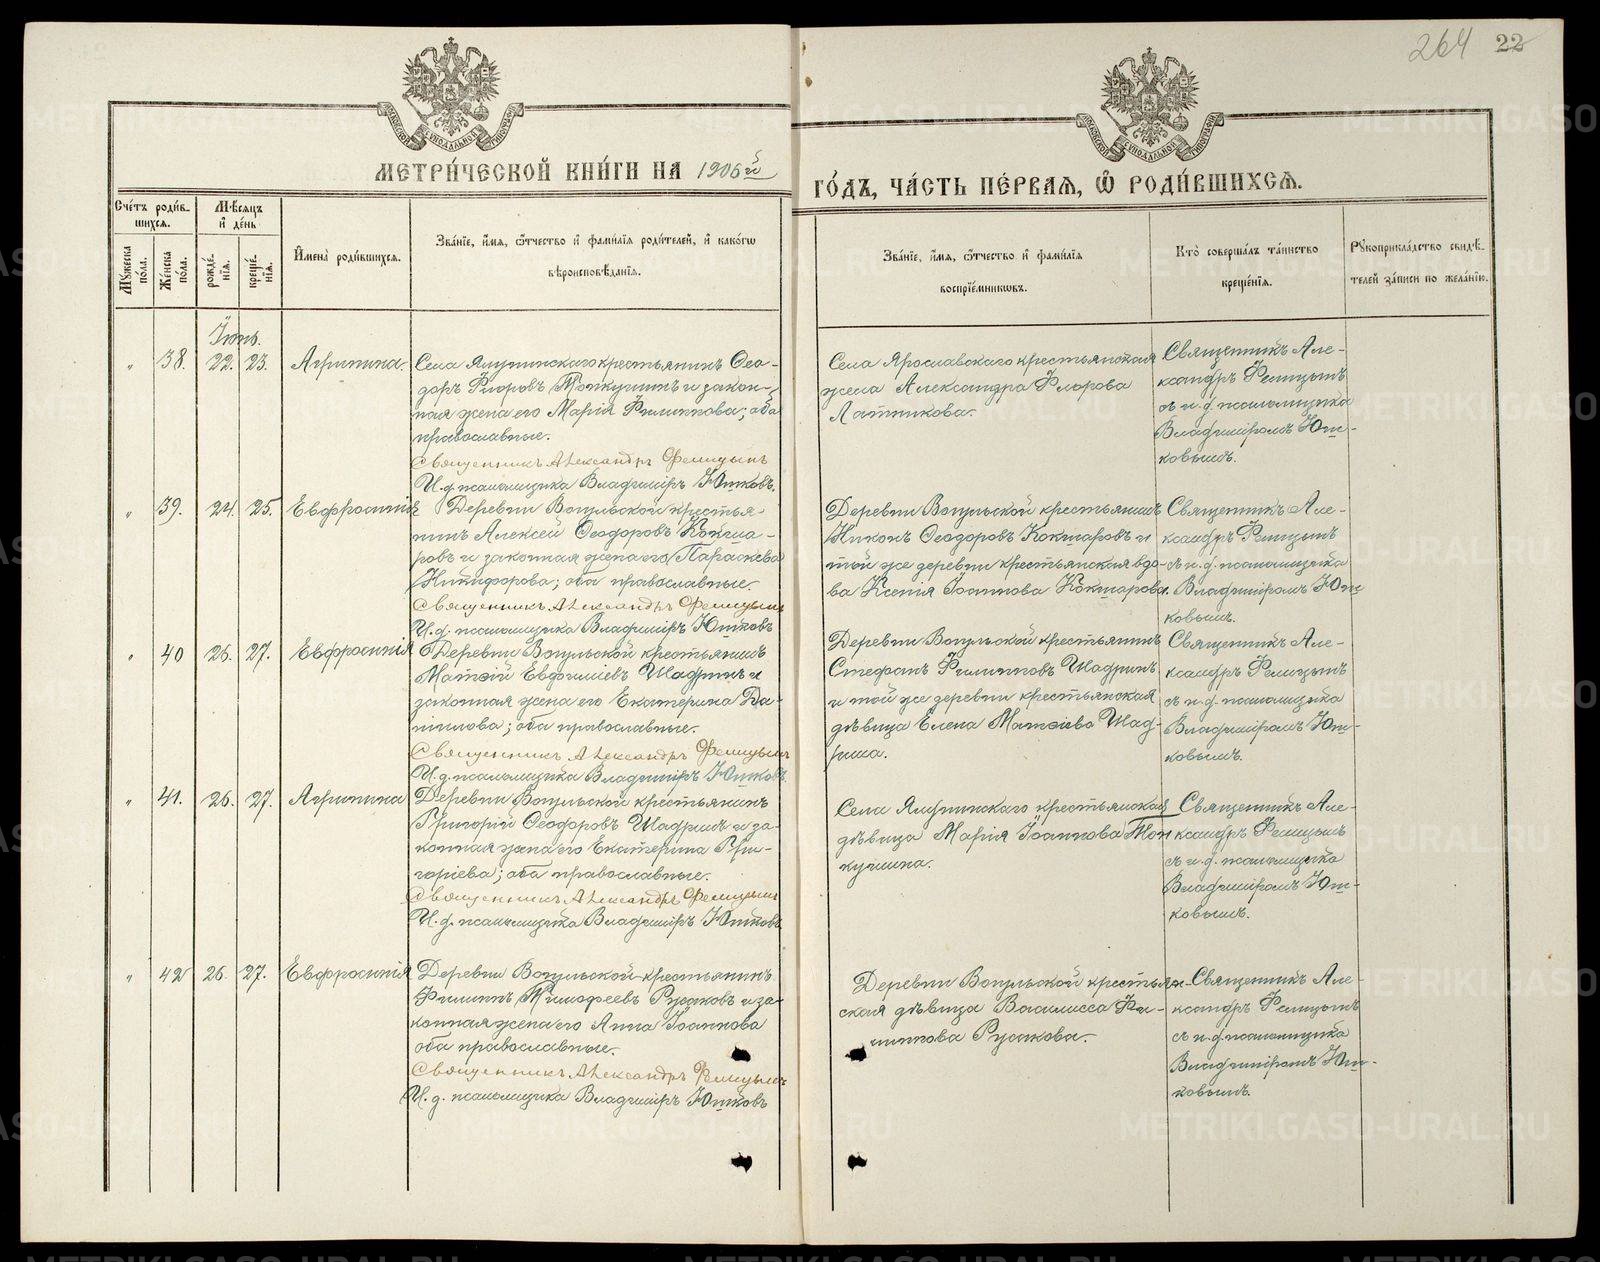 264 22
МОСКОВСКОЙ СѴНОДАЛЬНОЙ ТИПОГРАФІИ
МОСКОВСКОЙ СѴНОДАЛЬНОЙ ТИПОГРАФІИ
МЕТРИ́ЧЕСКОЙ КНИ́ГИ НА 1906й
ГО́ДЪ, ЧА́СТЬ ПЕ́РВАѦ, Ѽ РОДИ́ВШИХСѦ.
Сче́тъ роди́в-
шихсѧ.
Мꙋжеска по́ла.
Же́нска по́ла.
Мѣ́сѧцъ
и҆ де́нь
рожде́-нїѧ.
креще́-нїѧ.
И҆мена̀ роди́вшихсѧ.
Зва́нїе, и҆́мѧ, ѻ҆́тчество и҆ фами́лїѧ роди́телей, и҆ како́гѡ
вѣроисповѣ́данїѧ.
Зва́нїе, и҆́мѧ, ѻ҆́тчество и҆ фами́лїѧ
воспрїе́мникѡвъ.
Кто̀ соверша́лъ та́инство
креще́нїѧ.
Рꙋкоприкла́дство свидѣ́-
телей за́писи по жела́нїю.
Іюнь.
" 38. 22. 23. Агрипина.
Села Ялунинскаго крестьянинъ Ѳео-
доръ Флоровъ Тонкушинъ и закон-
ная жена его Марія Филиппова; оба
православные.
Священникъ Александръ Фелицынъ
И.д. псаломщика Владиміръ Юшковъ.
Села Ярославскаго крестьянская
жена Александра Флорова
Латникова.
Священникъ Але-
ксандръ Фелицынъ
съ и.д. псаломщика
Владиміромъ Юш-
ковымъ.
" 39. 24. 25. Евфросинія
Деревни Вогульской крестья-
нинъ Алексѣй Ѳеодоровъ Кокша-
ровъ и законная жена его Параскева
Никифорова; оба православные.
Священникъ Александръ Фелицынъ
И.д. псаломщика Владиміръ Юшковъ
Деревни Вогульской крестьянинъ
Никонъ Ѳеодоровъ Кокшаровъ и
той же деревни крестьянская вдо-
ва Ксенія Іоаннова Кокшарова.
Священникъ Але-
ксандръ Фелицынъ
съ и.д. псаломщика
Владиміромъ Юш-
ковымъ.
" 40 26. 27. Евфросинія
Деревни Вогульской крестьянинъ
Матѳій Евфиміевъ Шадринъ и
законная жена его Екатерина Да-
ніилова; оба православные.
Священникъ Александръ Фелицынъ
И.д. псаломщика Владиміръ Юшковъ.
Деревни Вогульской крестьянинъ
Стефанъ Филипповъ Шадринъ
и той же деревни крестьянская
дѣвица Елена Матѳіева Шад-
рина.
Священникъ Але-
ксандръ Фелицынъ
съ и.д. псаломщика
Владиміромъ Юш-
ковымъ.
" 41. 26. 27. Агрипина
Деревни Вогульской крестьянинъ
Григорій Ѳеодоровъ Шадринъ и за-
конная жена его Екатерина Гри-
горіева; оба православные.
Священникъ Александръ Фелицынъ
И.д. псаломщика Владиміръ Юшковъ.
Села Ялунинскаго крестьянская
дѣвица Марія Іоаннова Тон
кушина.
Священникъ Але-
ксандръ Фелицынъ
съ и.д. псаломщика
Владиміромъ Юш-
ковымъ.
" 42 26. 27. Евфросинія
Деревни Вогульской крестьянинъ
Филиппъ Тимофеевъ Русаковъ и за-
конная жена его Анна Іоаннова
оба православные.
Священникъ Александръ Фелицынъ
И.д. псаломщика Владиміръ Юшковъ
Деревни Вогульской крестьян-
ская дѣвица Василисса Фи-
липпова Русакова.
Священникъ Але-
ксандръ Фелицынъ
съ и.д. псаломщика
Владиміромъ Юш-
ковымъ.
METRIKI.GASO-URAL.RU